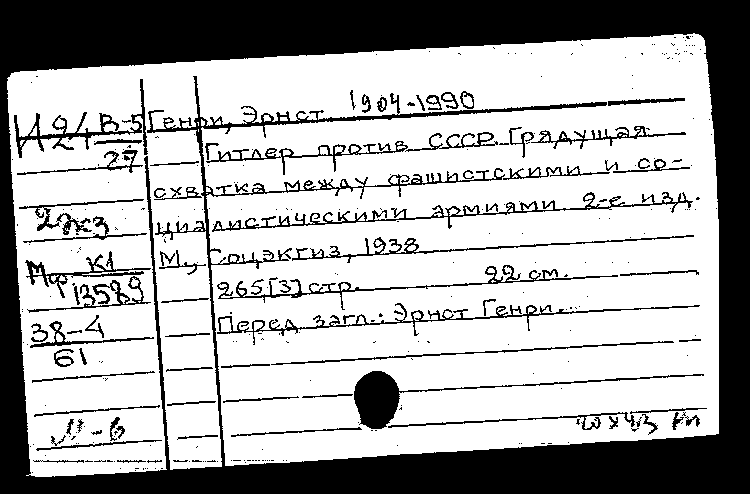 И24 В-5 Генри, Эрнст 1904-1990
27 Гитлер против СССР. Грядущая
схватка между фашистскими и со-
2экз циалистическими армиями. 2-е изд.
Мф К1 М., Соцэкгиз, 1938
13589 265,[3] стр. 22 см.
38-4 Перед загл.: Эрнст Генри.
61
М-в